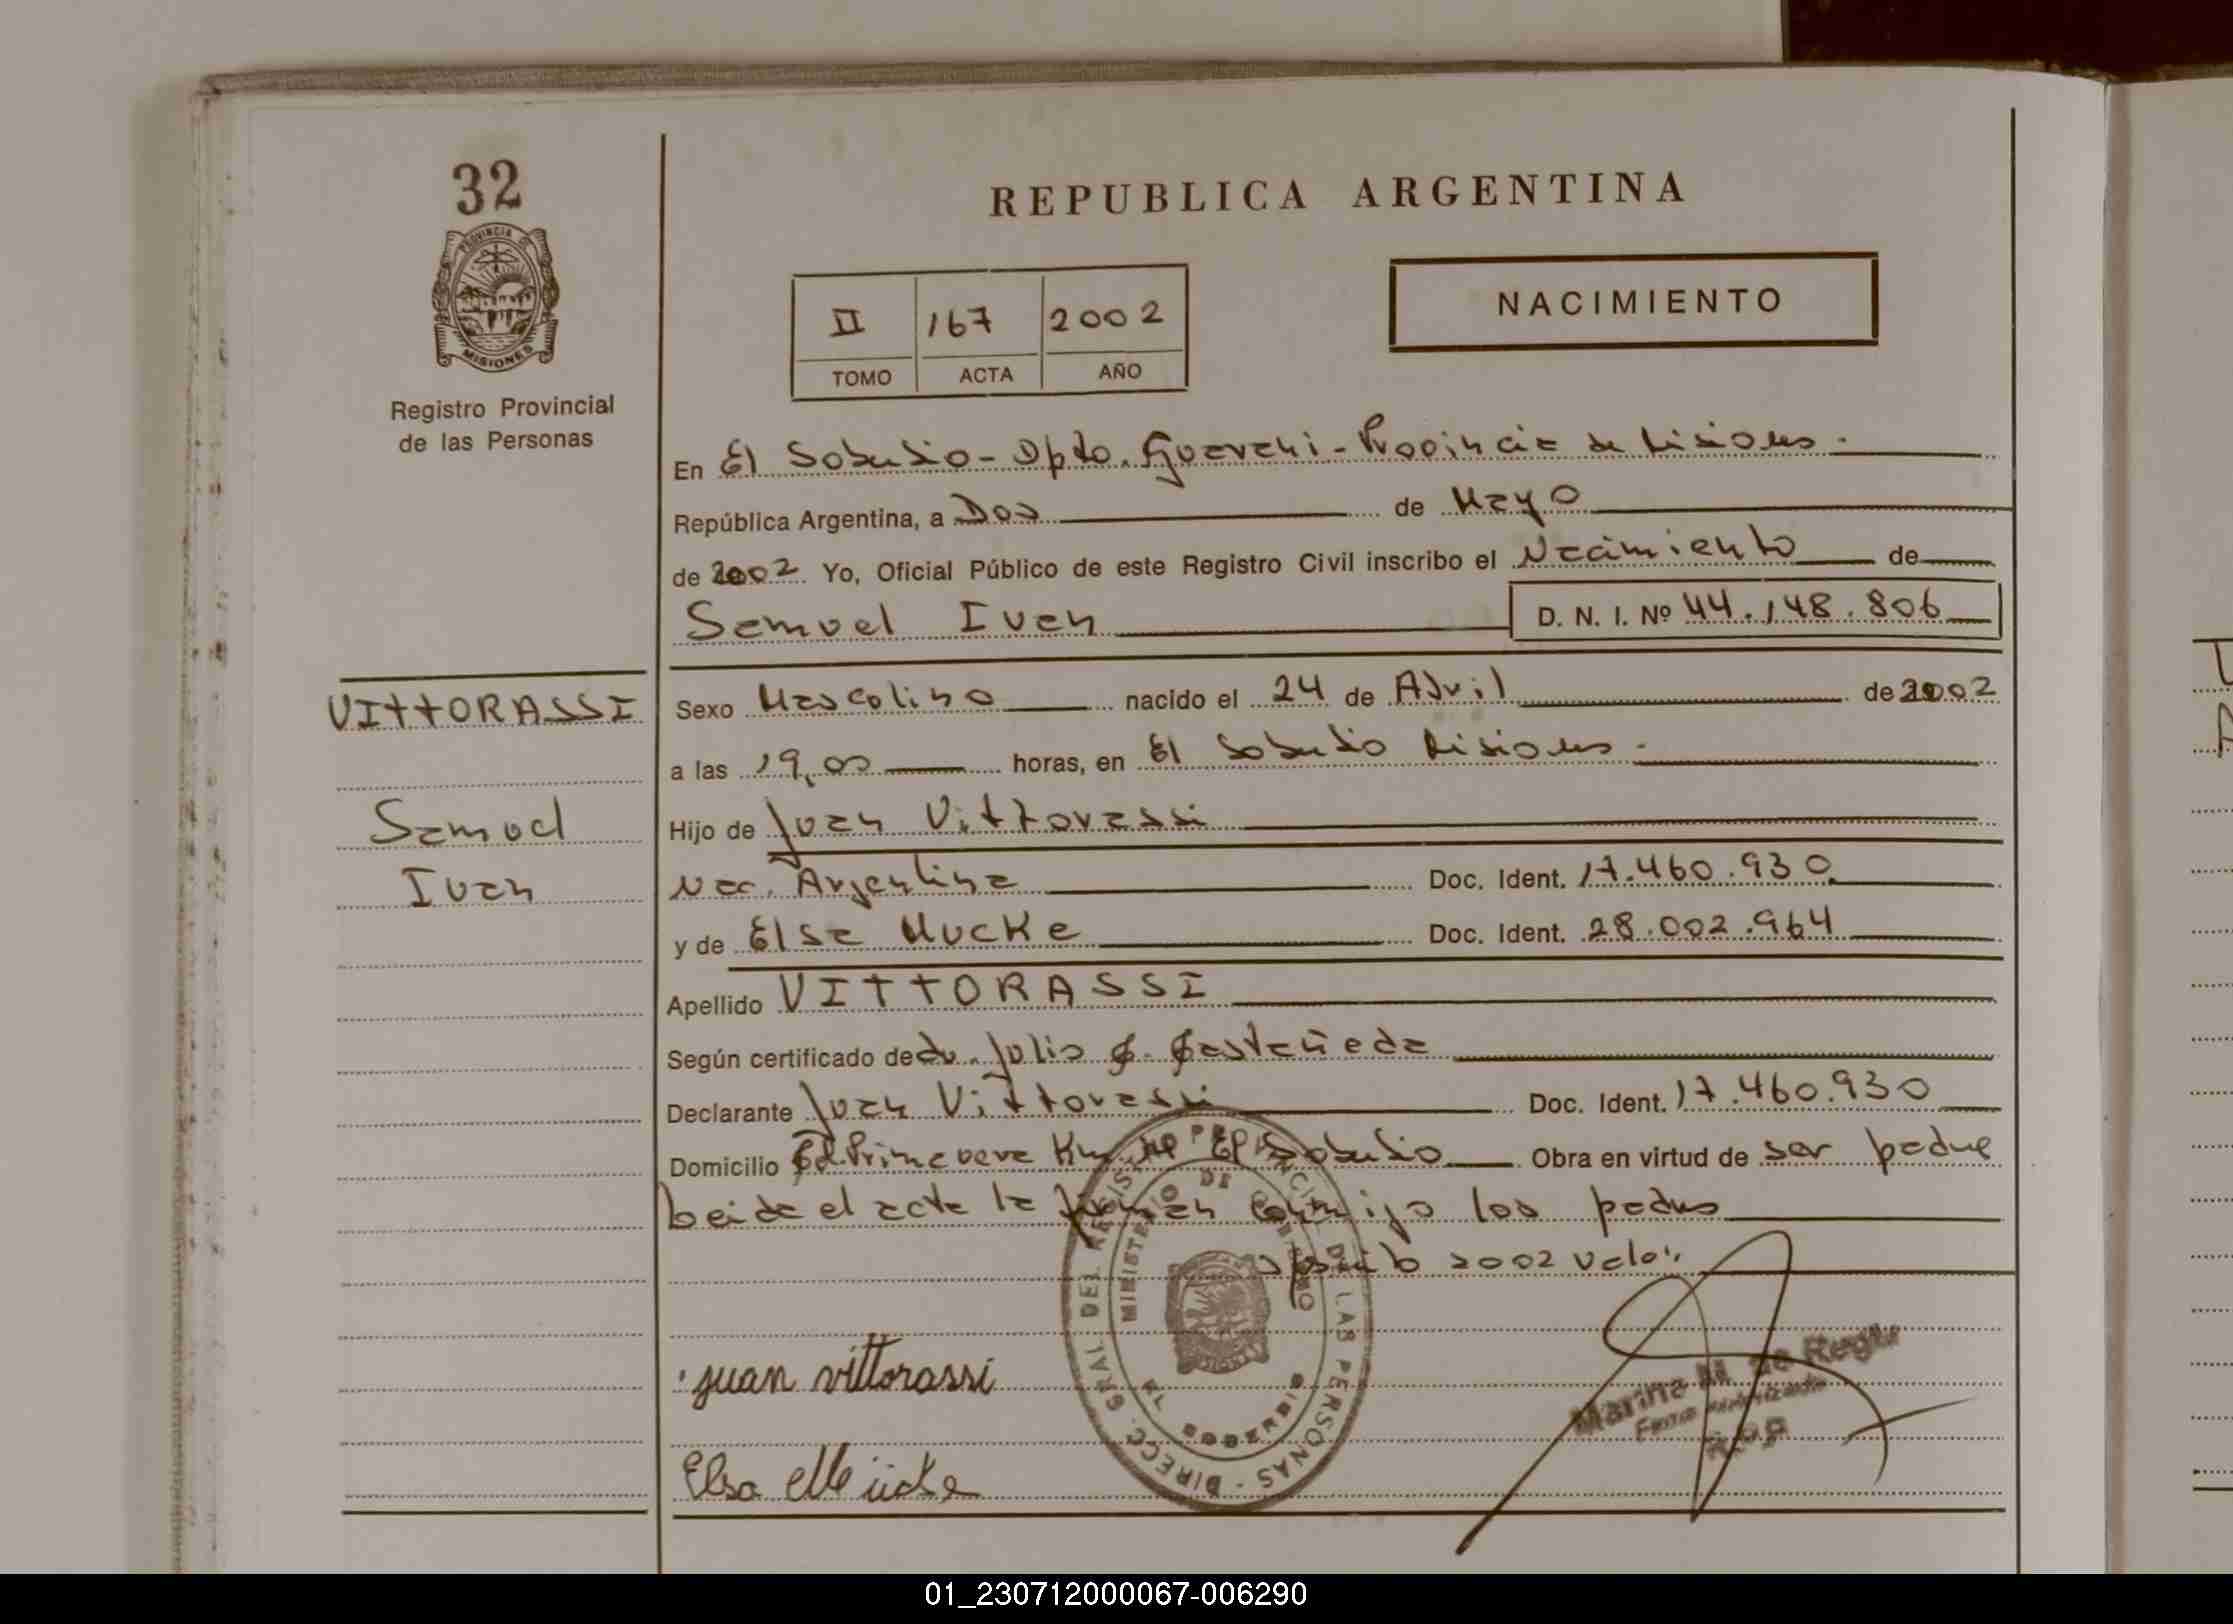 32
PROVINCIA DE
MISIONES
Registro Provincial
de las Personas
REPUBLICA ARGENTINA
NACIMIENTO
II 167 2002
TOMO ACTA AÑO
En El Soberbio - Dpto. Guarani - Provincia de Misiones.-
República Argentina, a Dos de Mayo
de 2002 Yo, Oficial Público de este Registro Civil inscribo el Nacimiento de
Samuel Ivan D. N. I. Nº 44.148.806
VITTORASSI
Samuel
Ivan
Sexo Masculino nacido el 24 de Abril de 2002
a las 19,00 horas, en El Soberbio Misiones.-
Hijo de Juan Vittorassi
Nac. Argentina Doc. Ident. 17.460.930
y de Elsa Mucke Doc. Ident. 28.002.964
Apellido VITTORASSI
Según certificado de dr. Julio Castañeda
Declarante Juan Vittorassi Doc. Ident. 17.460.930
Domicilio Primavera El Soberbio Obra en virtud de ser padre
Leida el acta la firman conmigo los padres
2002 vale:
juan vittorassi
Elsa Mücke
DIRECC. GRAL DEL REGISTRO PROVINCIAL DE LAS PERSONAS -
MINISTERIO DE GOBIERNO
EL SOBERBIO
MISIONES
Marina N. de Regis
Firma Autorizada
R.P.P
01_230712000067-006290